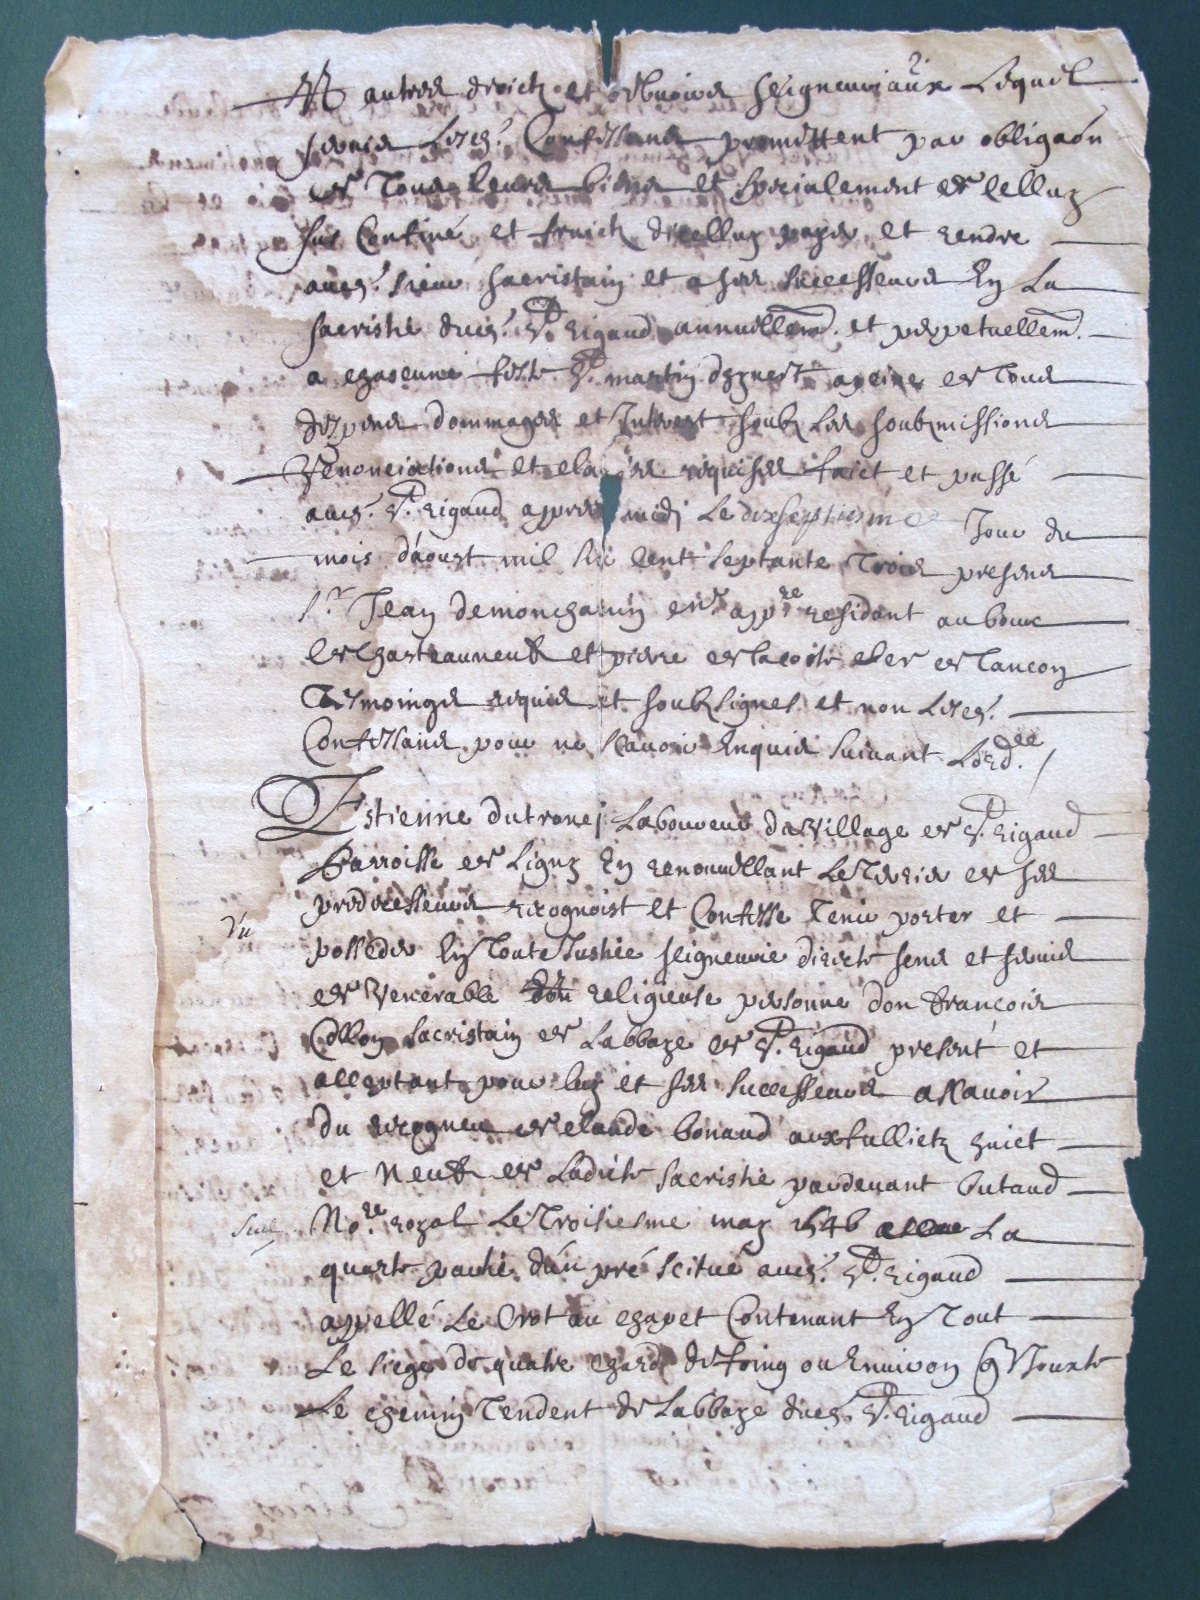 Et autres droictz et debvoirs seigneuriaux Lequel
servis Lesd. Confessans promettent par obligaon
de Tous leurs biens et specialement de celluy
sus Confiné et fruictz dicelluy payer et rendre
aud. sieur sacristain et a ses successeurs En La
sacristie dud. St. rigaud annuellemt. et perpetuellemt.
a chascune feste St. martin dhyvert apeine de Tous
despens dommages et Interest soubz Les soubzmissions
Renonciations et clauses requises faict et passé
aud. St. rigaud apres midj Le dixseptiesme Jour du
mois d'aoust mil six cent septante Trois presens
Sr. Jean demonchanin appre. residant au bourc
de Chasteauneuf et pierre de lacoste clerc de Tancon
Tesmoings requis et soubzsignes et non Lesd.
Confessans pour ne scavoir Enquis suivant Lord.ce
Estienne dutroncj Laboureur du Village de St. rigaud
Parroisse de Ligny En renouvellant Le Terrier de ses
predecesseurs recognoist et Confesse Tenir porter et
Vu
posseder En Toute Justice seigneurie directe sens et servis
de Venerable religieuse personne don francois
Collon sacristain de Labbaye de St. rigaud present et
acceptant pour luy et ses successeurs ascavoir
du recogneu de claude bonaud aux fullietz huict
et Neuf de Ladicte sacristie pardevant butaud
No.re royal Le Troisiesme may 1546 La
quarte partie d'un pré scitué aud. St. rigaud
appellé Le Crot au chapet Contenant En Tout
Le siege de quatre chards de foing ou Environ Jouxte
Le chemin Tendent de Labbaye dud. St. rigaud